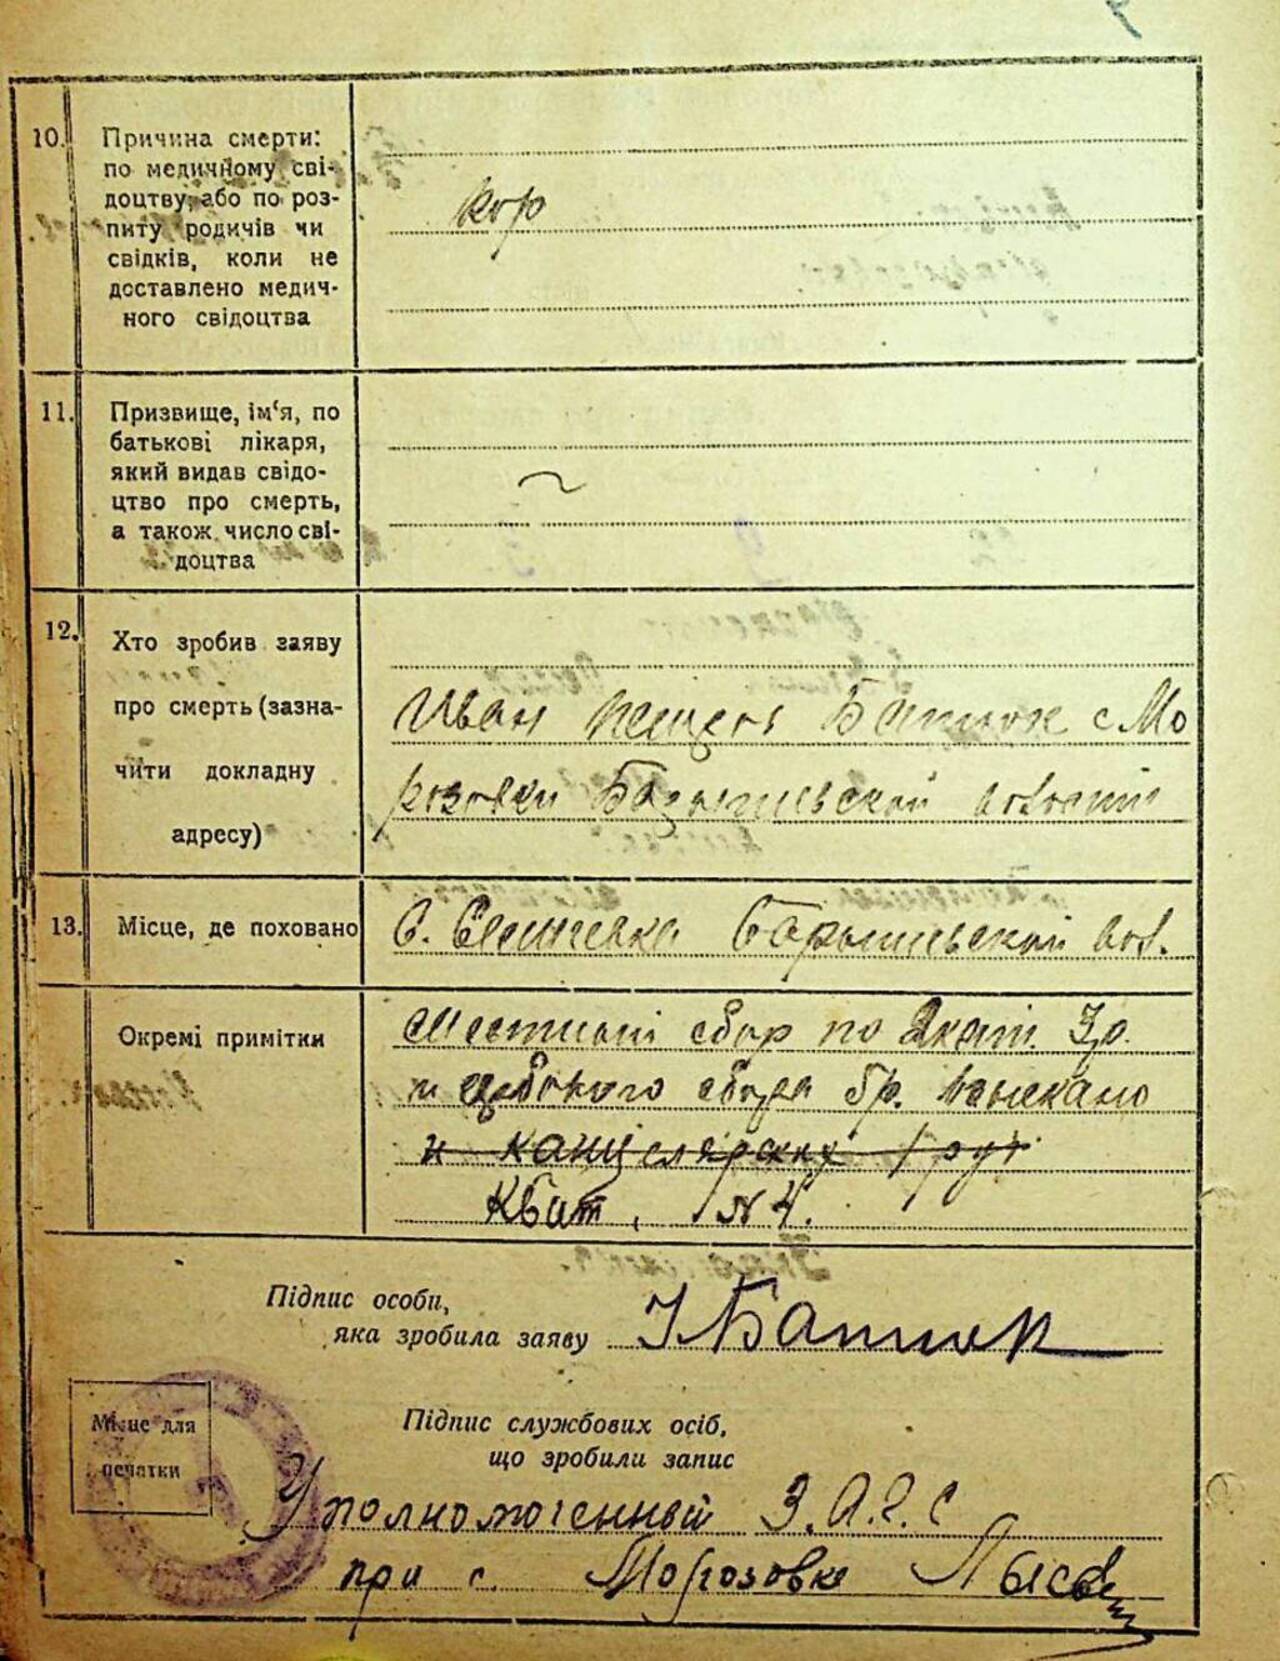 10. Причина смерти:
по медичному сві-
доцтву, або по роз-
питу родичів чи
свідків, коли не
доставлено медич-
ного свідоцтва
кор
11. Призвище, ім‘я, по
батькові лікаря,
який видав свідо-
цтво про смерть,
а також число сві-
доцтва
12. Хто зробив заяву
про смерть (зазна-
чити докладну
адресу)
Иван Батюк с Мо
розовки волости
13. Місце, де поховано
С. Барышевской вол.
Окремі примітки
Местный сбор по 2 кат. 3 р.
и сбора 5 р. взыскано
и канцелярских 1 руб
Квит. № 4.
Підпис особи,
яка зробила заяву І Батюк
Місце для
печатки
Підпис службових осіб,
що зробили запис
Уполномоченный З.А.Г.С
при с. Морозовке